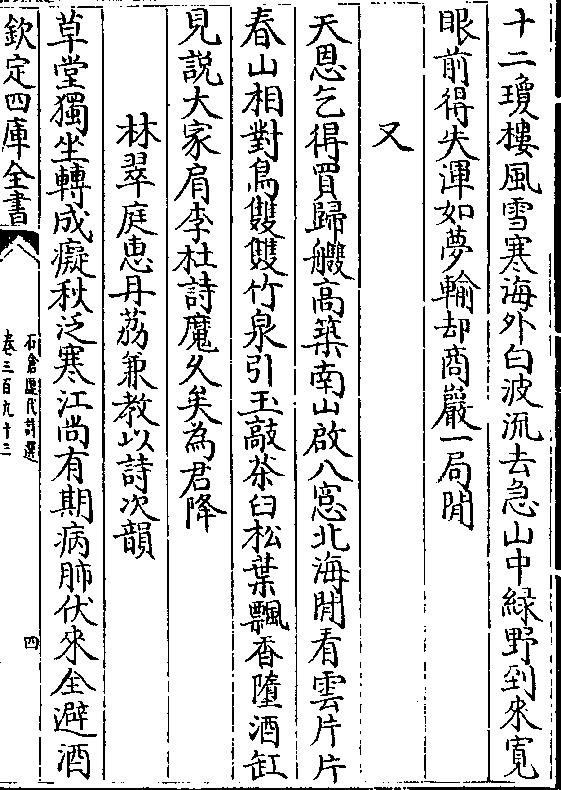 十二瓊樓風雪寒海外白波流去急山中緑野到來寛
眼前得失渾如夢輸却商巖一局閒
又
天恩乞得買歸艭高築南山啟八窻北海閒看雲片片
春山相對鳥雙雙竹泉引玉敲茶臼松葉飄香墮酒缸
見説大家肩李杜詩魔久矣為君降
林翠庭惠丹荔兼教以詩次韻
草堂獨坐轉成癡秋泛寒江尚有期病肺伏來全避酒
欽定四庫全書
石倉歴代詩選
卷三百九十三
四